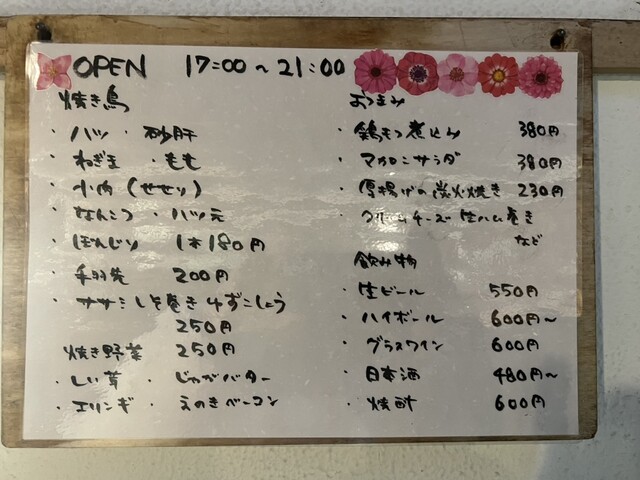 OPEN 17:00～21:00
焼き鳥
・ハツ ・砂肝
・ねぎま ・もも
・小肉(せせり)
・なんこつ ・ハツ元
・ぼんじり 1本180円
・手羽先 200円
・ササミしそ巻きゆずこしょう
250円
焼き野菜 250円
・しい茸 ・じゃがバター
・エリンギ ・えのきベーコン
おつまみ
・鶏もつ煮込み 380円
・マカロニサラダ 380円
・厚揚げの炭火焼き 230円
・クリームチーズ生ハム巻き
など
飲み物
・生ビール 550円
・ハイボール 600円～
・グラスワイン 600円
・日本酒 480円～
・焼酎 600円